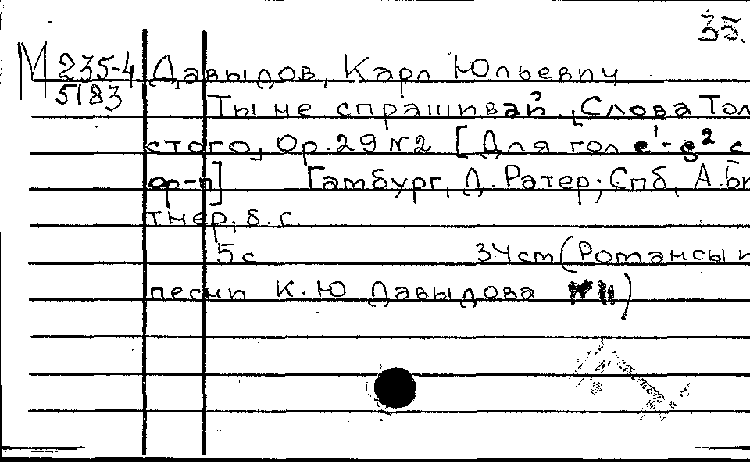 35.
М 235-4 Давыдов, Карл Юльевич
5183
Ты не спрашивай. [Слова Тол
стого] Op. 29 № 2 [Для гол e¹-g² с
ф-п] Гамбург, Д. Ратер; Спб, А. Би
тнер, б. г.
5 с 34 cm (Романсы и
песни К. Ю Давыдова № 11)